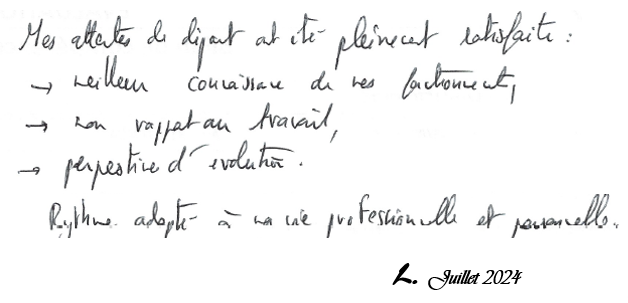 Mes attentes de départ ont été pleinement satisfaite :
→ meilleur connaissance de mes fonctionnement,
→ mon rapport au travail,
→ perspective d'évolution.
Rythme adapté à ma vie professionnelle et personnelle.
L. Juillet 2024